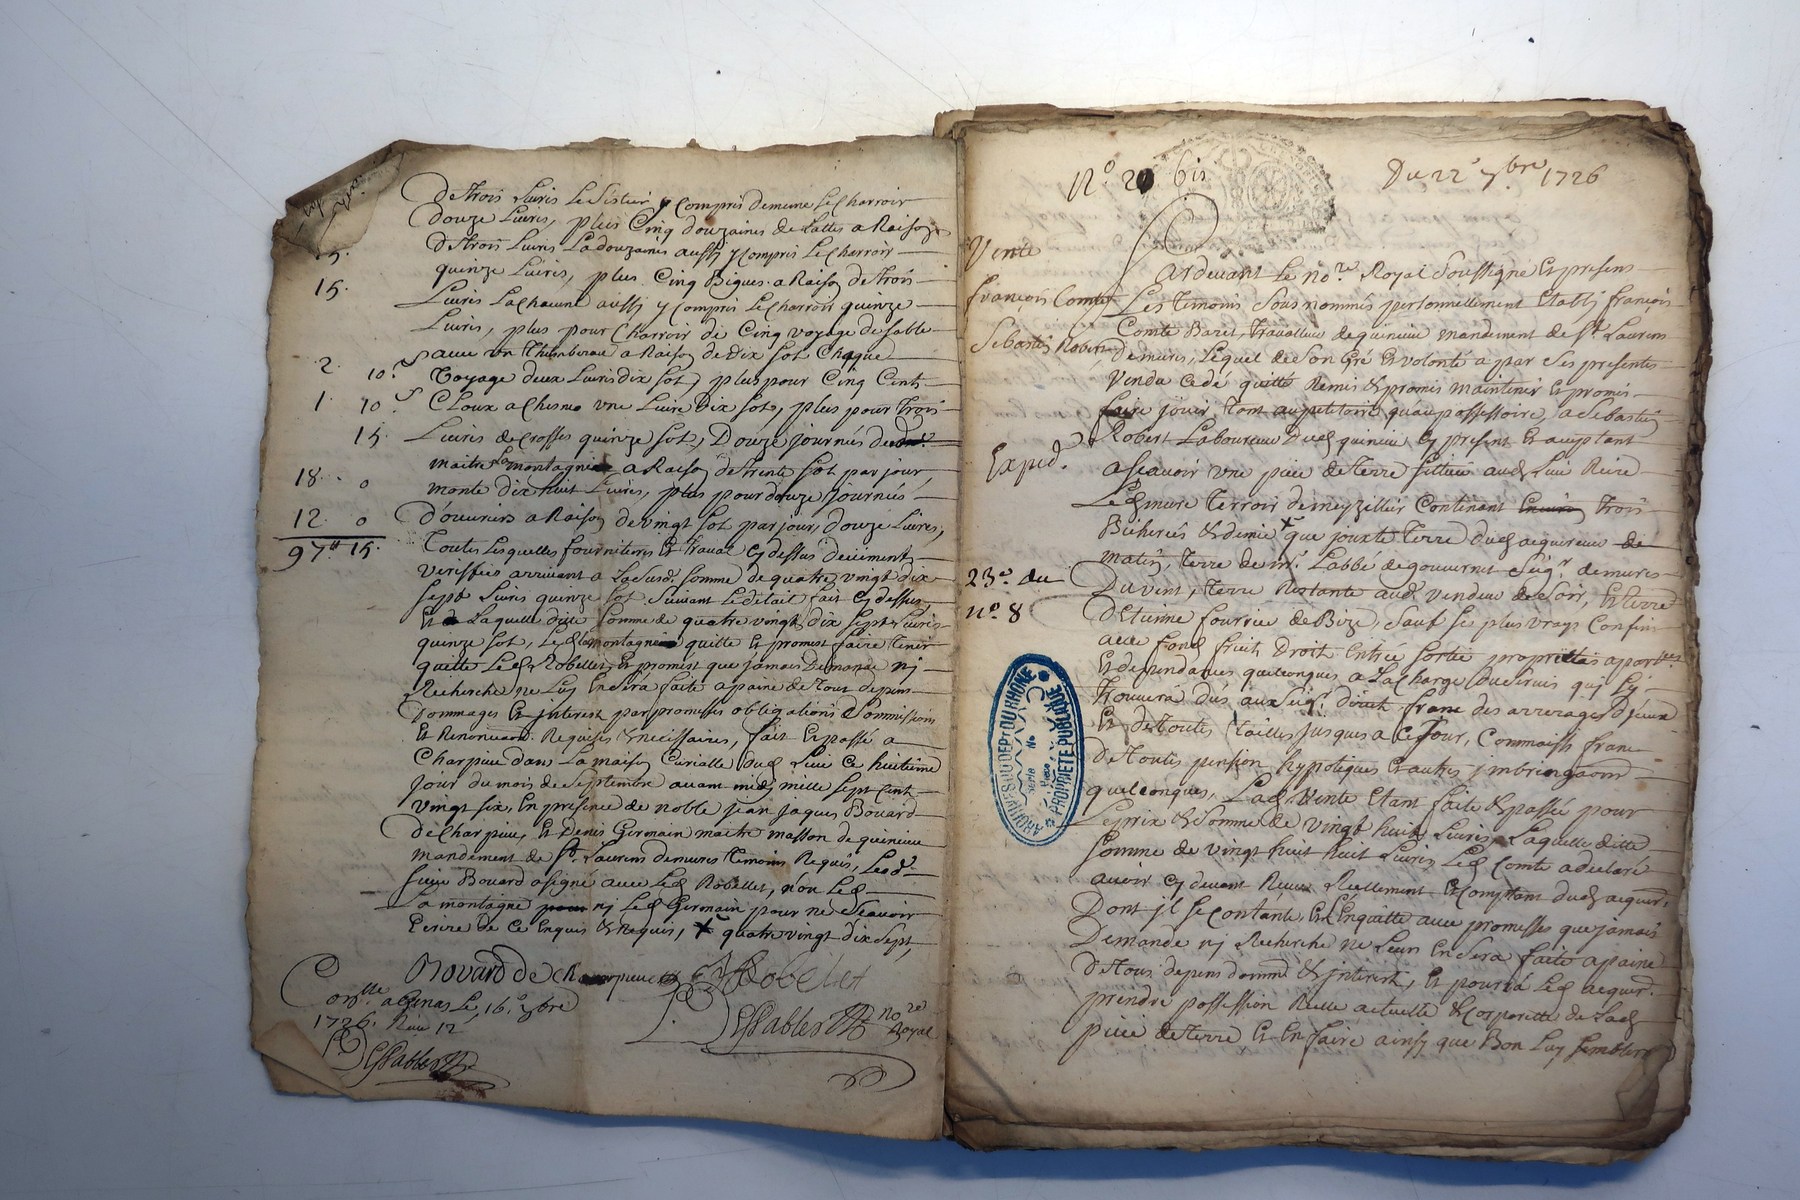 De trois Livres Le Sistier y compris de meme Le Charroir
Douze Livres, plus Cinq douzaines de Lattes a Raison
De trois Livres La douzaines aussy y compris Le Charroir
15. quinze Livres, plus Cinq Bigues a Raison De trois
Livres La chacune aussy y compris Le charroir quinze
Livres, plus pour Charroir de Cinq voyage de sable
avec un Thumbereau a Raison de Dix sot Chaque
2. 10.s voyage deux Livres dix sot, plus pour Cinq Cents
1. 10s Cloux a Chesne une Livre Dix sot, plus pour trois
15. Livres de crosses quinze sot, Douze journés du
maitre La montagne a Raison de trente sot par jour
18. 0 monte dix huit Livres, plus pour douze journés
12. 0 D'ouvriers a Raison de vingt sot par jour, douze Livres,
97# 15. Toutes Lesquelles fournitures Et travail cy dessus deüement
veriffiés arrivant a La susd. somme de quatre vingt dix
sept Livres quinze sot suivant Le détail fait cy dessus,
Et Laquelle dite somme de quatre vingt dix sept Livres
quinze sot, Led. La montagne quitte Et promet faire tenir
quitte Led. Robellet, Et promest que jamais Demande nj
Recherche ne Luy En sera faite a paine de tout depens
Dommages Et interest par promesses obligations Sommissions
Et Renonciaons Requises & necessaires, fait Et passé a
Charpieu dans La maison Curialle dud. Lieu Ce huitième
jour du mois de Septembre avant midy mille sept cent
vingt six, En présence de noble jean jaques Bovard
De Charpieu, Et Denis Germain maitre masson de quinieu
mandement de St. Laurens de mures temoins Requis, Led.
sieur Bovard a signé avec Led. Robellet, non Led.
La montagne nj Led. Germain pour ne Scavoir
Ecrire de Ce Enquis & Requis, x quatre vingt dix sept,
Bovard de Charpieu Robelet
Con.lle a Genas Le 16.e 7bre
1726. Reçu 12s
No.re Royal
N.o 20 bis Du 22e 7.bre 1726
Vente
François Comte
Sebastien Robert
Pardevant Le no.re Royal Soussigné Et presens
Les temoins Sous nommés personnellement Etably françois
Comte Baret travailleur de quinieu mandement de St. Laurens
de mures, Lequel de son Gré Et volonté a par Ses presentes
Vendu Cedé quitté Remis & promis maintenir Et promis
faire joüir tant au petitoire qu'au possessoire, a Sebastien
Robert Laboureur dud. quinieu cy present Et aceptant
Exped.
ascavoir une piece de terre sittuée aud. Lieu Riere
Led. mure terroir de meyzellier Contenant trois
Bicherées & demie x que jouxte terre dud. acquereur de
matin, terre de mr. L'abbé de gouvernet Seig.r de mures
23.e du
n.o 8
Du vent, terre Restante aud. vendeur de Soir, Et terre
D'Etienne fourrier de Bize, Sauf Se plus vrays Confins
avec fond fruit Droit Entrée sortie proprietés apar.ces
Et dependances quelconques, a La Charge
trouvera dus aux Seig.r direct franc des arrerages D'jceux
Et de toutes tailles jusques a Ce jour, Commaussy franc
De toutes pension hypoteques Et autres jmbringaons
quelconques, Lad. Vente Etant faite & passée pour
Le prix & Somme de vingt huit Livres, Laquelle ditte
somme de vingt huit huit Livres Led. Comte a declaré
avoir cy devant Reçue Reellement Et Comptant dud. acquer.
Dont jl Se contante, Et L'Enquitte avec promesses que jamais
Demande nj Recherche ne Leur En Sera faite a paine
De tous depens dommé & jnterest, Et pourra Led. acquer.
prendre possession Reelle actuelle & Corporelle de Lad.
piece de terre Et En faire ainsy que Bon Luy semblera
ARCHIVES DU DEPT DU RHONE
PROPRIÉTÉ PUBLIQUE
Série No